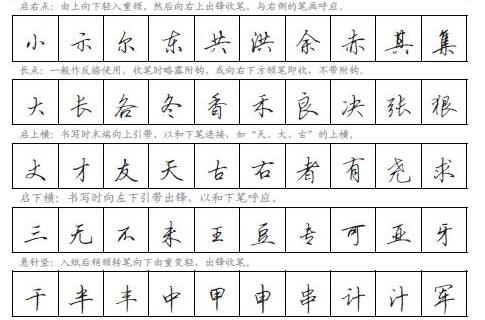 启右点：由上向下轻入重顿，然后向右上出锋收笔，与右侧的笔画呼应。
小 示 尔 东 共 洪 余 赤 其 集
长点：一般作反捺使用，收笔时略露附钩，或向右下方顿笔即收，不带附钩。
大 长 各 冬 香 禾 良 决 张 狠
启上横：书写时末端向上引带，以和下笔连接，如“天、大、古”的上横。
丈 才 友 天 古 右 者 有 尧 求
启下横：书写时向左下引带出锋，以和下笔呼应。
三 无 不 来 王 豆 专 可 亚 牙
悬针竖：入纸后稍顿转笔向下由重变轻，出锋收笔。
干 半 丰 中 甲 申 串 计 汁 军